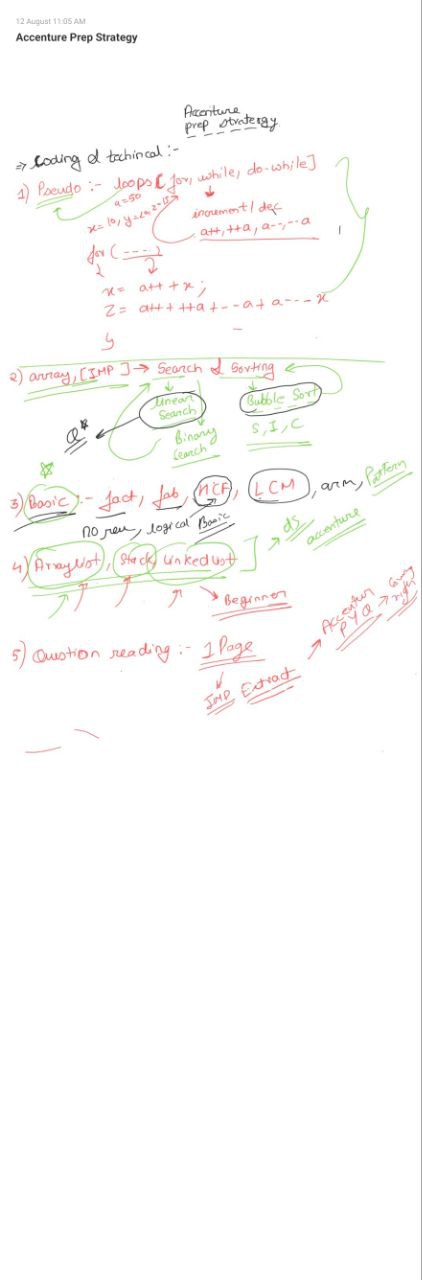 12 August 11:05 AM
Accenture Prep Strategy
Accenture
prep stratergy
⇒ Coding & techincal :-
1) Pseudo :- loops [for, while, do-while]
a=50
increment / dec
a++, ++a, a--, --a
for ( ---- )
{
x = a++ + x;
Z = a++ + ++a + --a + a-- - x
}
2) array, [IMP] → Search & Sorting
Linear Search
Bubble Sort
Q*
Binary Search
S, I, C
3) Basic :- fact, fab, HCF, LCM, arm, Pattern
no rev, logical Basic
4) ArrayList, Stack, Linkedlist ] → ds accenture
Beginner
5) Question reading :- 1 Page
IMP Extract
Accentur PYQ →
right